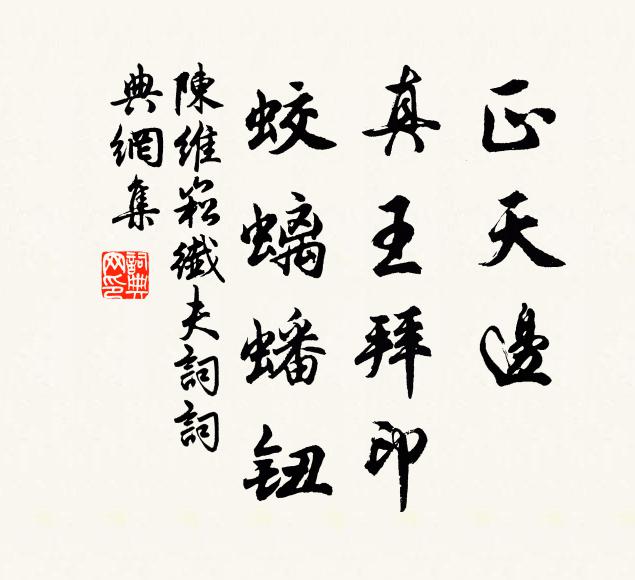 正天邊
真王拜印
蛟螭蟠鈕
陳維崧纖夫詞詞
典網集
詞典網印